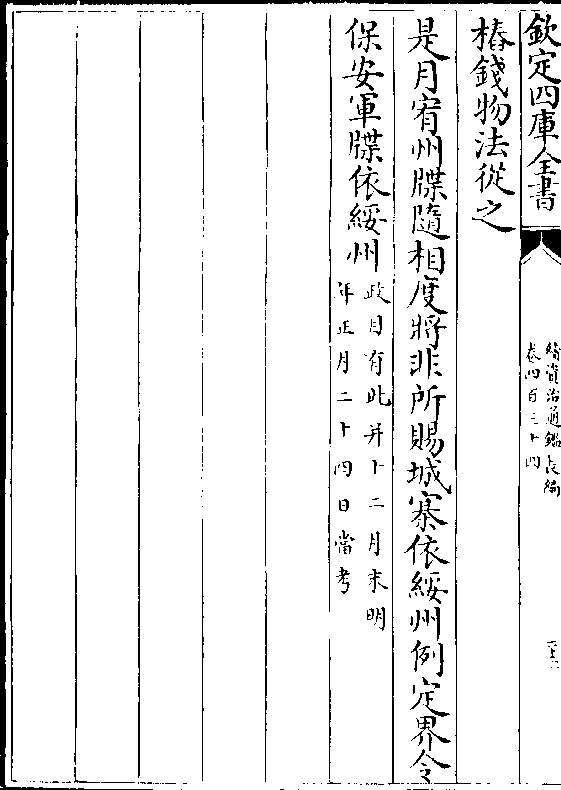 欽定四庫全書
續資治通鑑長編
卷四百三十四
樁錢物法從之
是月宥州牒隨相度將非所賜城寨依綏州例定界令
保安軍牒依綏州
政目有此并十二月末明
年正月二十四日當考